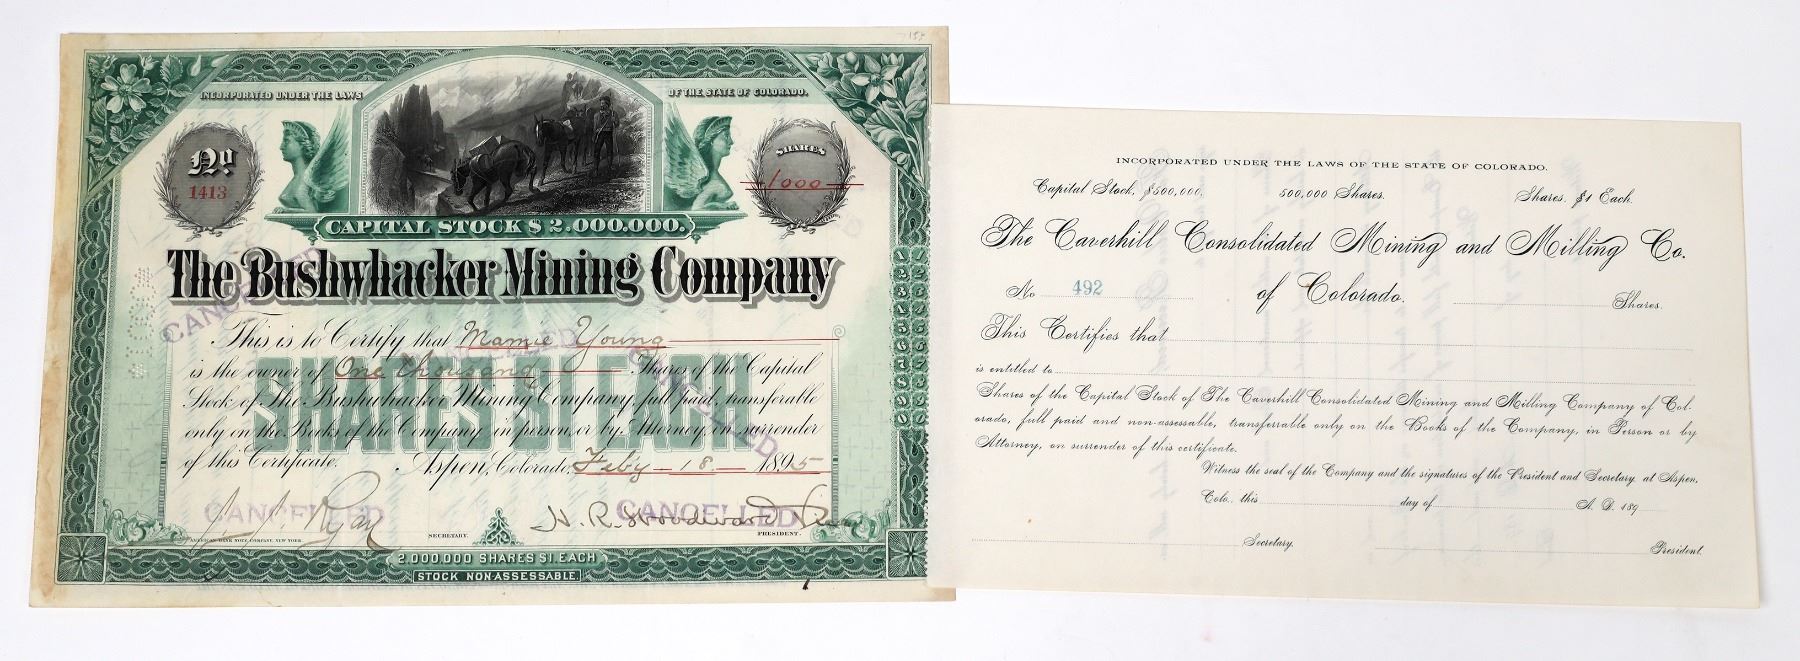 INCORPORATED UNDER THE LAWS OF THE STATE OF COLORADO.
No
1413
SHARES
1000
CAPITAL STOCK $ 2.000.000.
The Bushwhacker Mining Company
This is to Certify that Mamie Young
is the owner of One thousand Shares of the Capital
Stock of The Bushwhacker Mining Company, full paid, transferable
only on the Books of the Company in person, or by Attorney on surrender
of this Certificate. Aspen, Colorado, Feb'y 18 1895
SHARES $1 EACH
CANCELLED
CANCELLED
CANCELLED
CANCELLED
CANCELLED
J. J. Ryan
H. R. Woodward
AMERICAN BANK NOTE COMPANY, NEW YORK.
SECRETARY.
PRESIDENT.
2.000.000 SHARES $1 EACH
STOCK NON-ASSESSABLE.
INCORPORATED UNDER THE LAWS OF THE STATE OF COLORADO.
Capital Stock, $500,000. 500,000 Shares. Shares, $1 Each.
The Caverhill Consolidated Mining and Milling Co.
No 492 of Colorado. Shares.
This Certifies that
is entitled to
Shares of the Capital Stock of The Caverhill Consolidated Mining and Milling Company of Col-
orado, full paid and non-assessable, transferrable only on the Books of the Company, in Person or by
Attorney, on surrender of this certificate.
Witness the seal of the Company and the signatures of the President and Secretary, at Aspen,
Colo., this day of A. D. 189
Secretary. President.